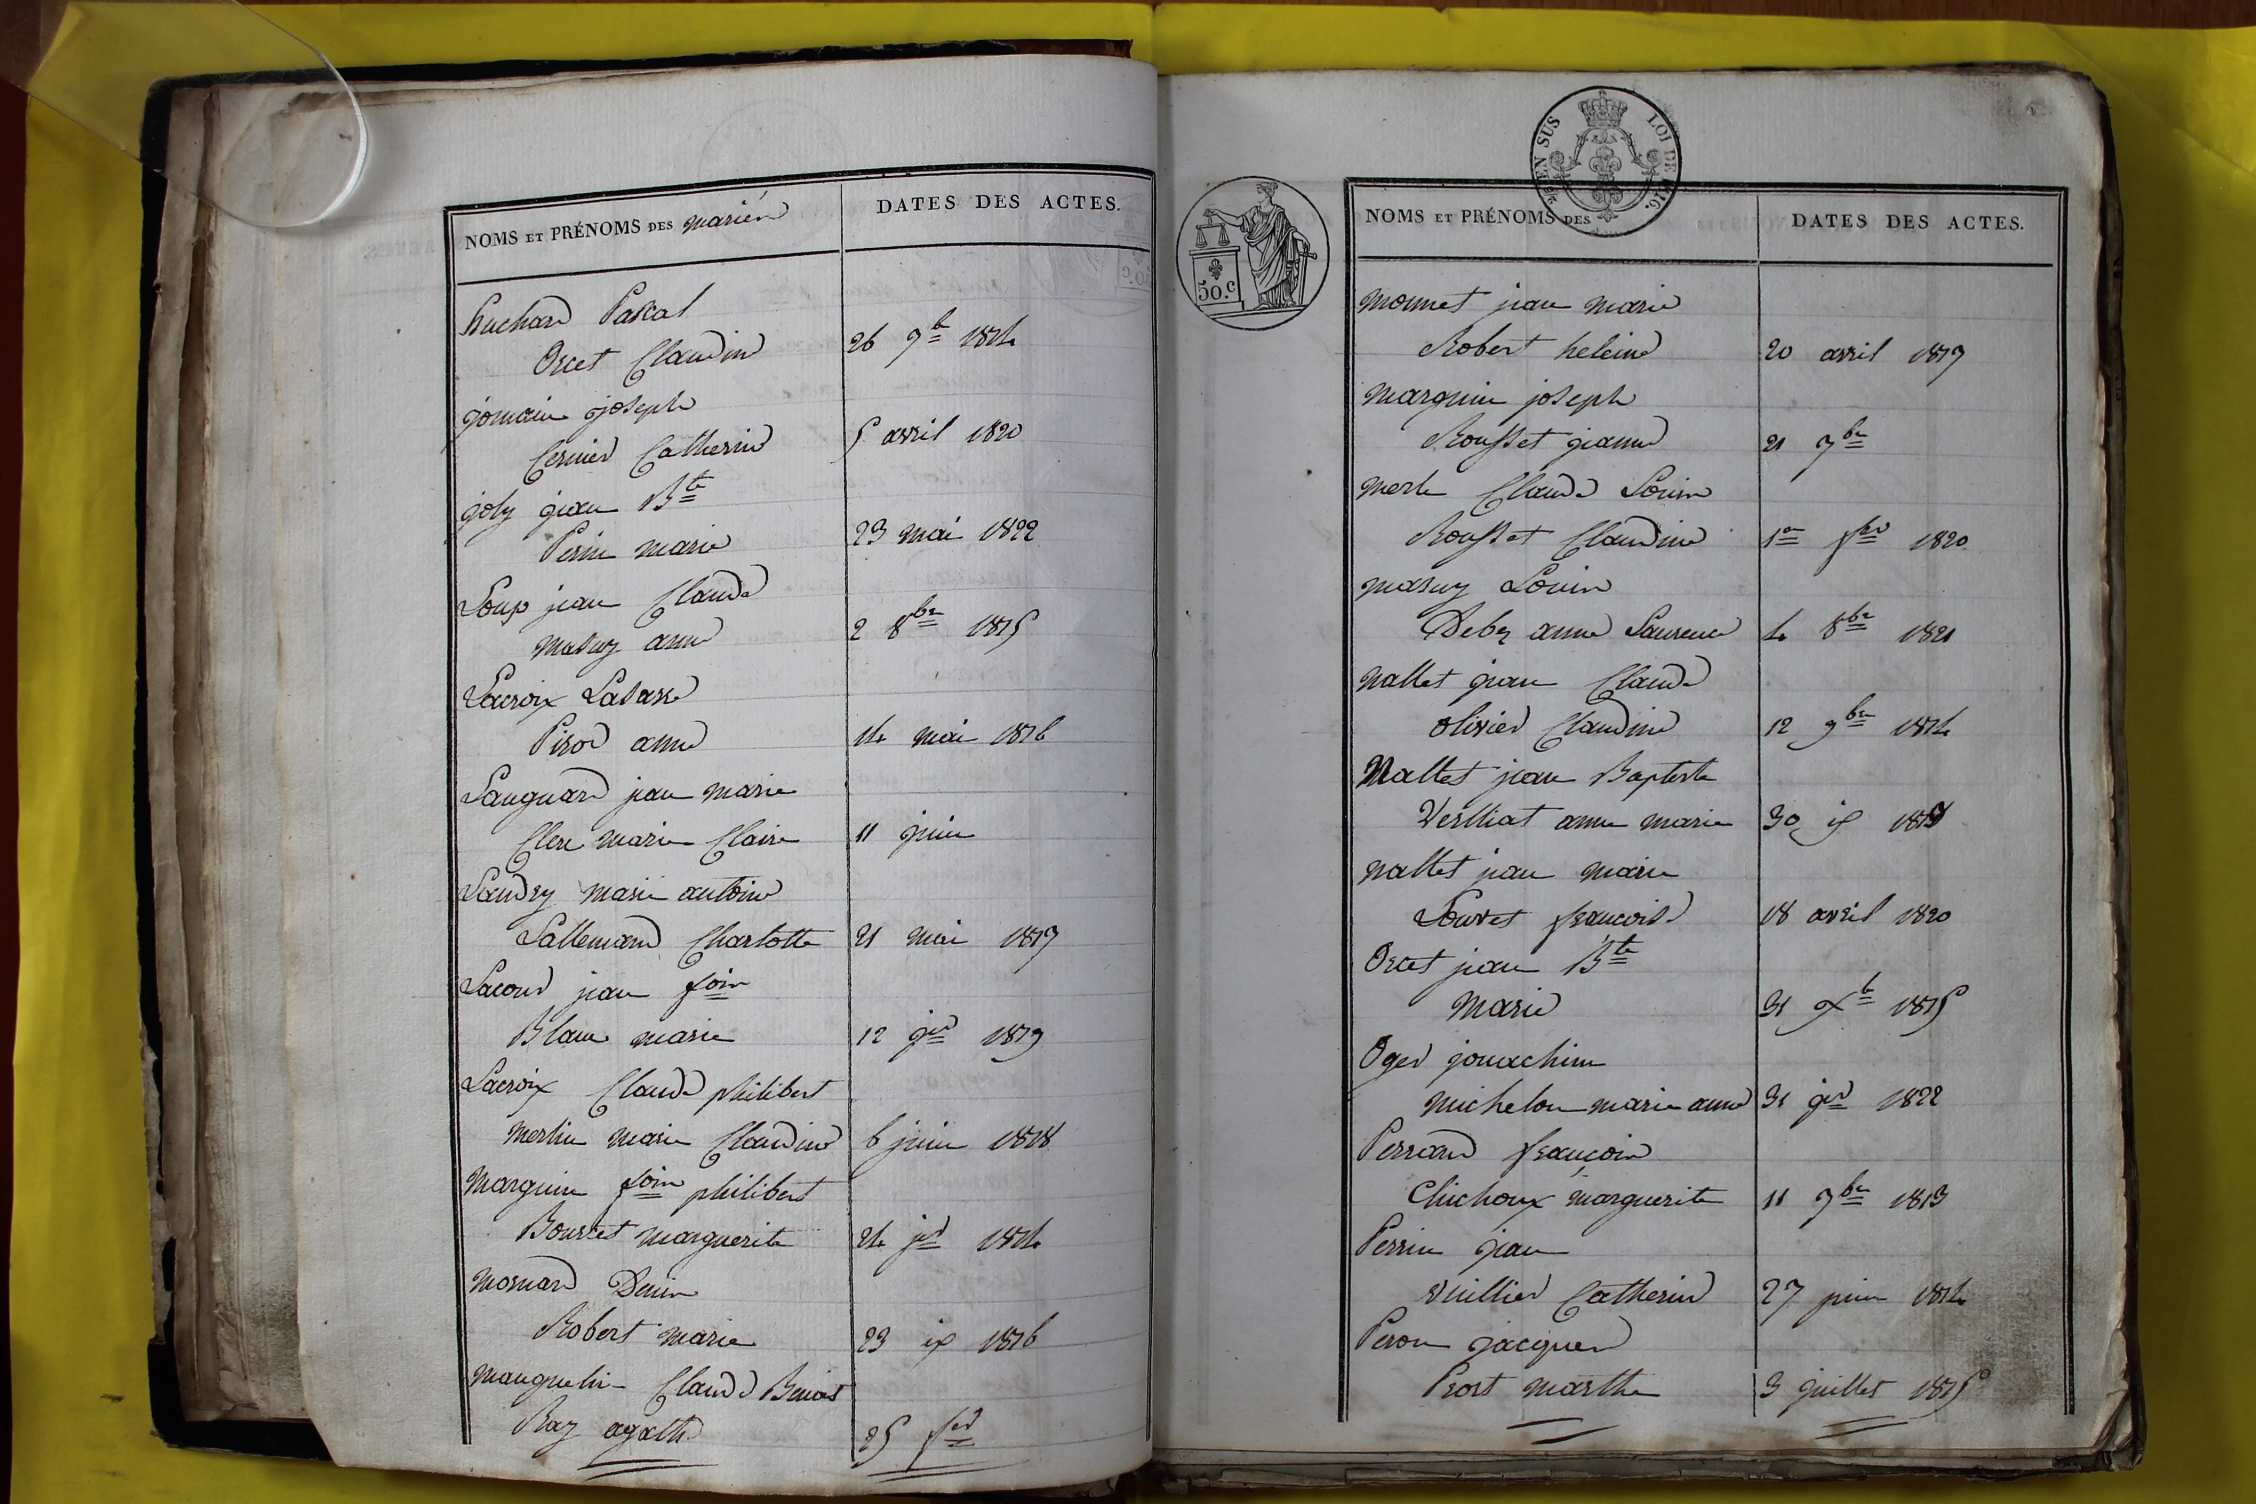 NOMS ET PRÉNOMS DES mariés
DATES DES ACTES.
huchard Pascal
Orcet Claudine 26 9b 1814
jomain joseph
Cernier Catherine 5 avril 1820
joly jean Bte
Perin marie 23 mai 1822
Loup jean Claude
masuy anne 2 8bre 1815
Lacroix Lasare
Pirod anne 14 mai 1816
Sauguard jean marie
Clere marie Claire 11 juin
Landry marie antoine
Lallemand Charlotte 21 mai 1817
Lacour jean fois
Blanc marie 12 jer 1819
Lacroix Claude philibert
merlin marie Claudine 6 juin 1818
Marguin fois philibert
Bourcet marguerite 24 jer 1814
mornard Denis
Robert marie 23 ix 1816
manguelin Claude Benoit
Ray agathe 25 fer
EN SUS LOI DE 1816.
50.c
NOMS ET PRÉNOMS DES
DATES DES ACTES.
monnet jean marie
Robert heleine 20 avril 1817
marguin joseph
Rousset jeanne 21 7bre
merle Claude Louis
Rousset Claudine 1er fer 1820
masuy Louis
Debez anne Laurence 4 8bre 1821
nallet jean Claude
olivier Claudine 12 9bre 1814
Nallet jean Baptiste
Verlliat anne marie 30 ix 1819
nallet jean marie
Louvet francoise 18 avril 1820
Orcet jean Bte
Marie 31 xb 1815
Oger jouachim
michelon marie anne 31 jer 1822
Perrard françois
Chichoux marguerite 11 7bre 1813
Perrin jean
vuillier Catherine 27 juin 1814
Peron jacques
Prost marthe 3 juillet 1815